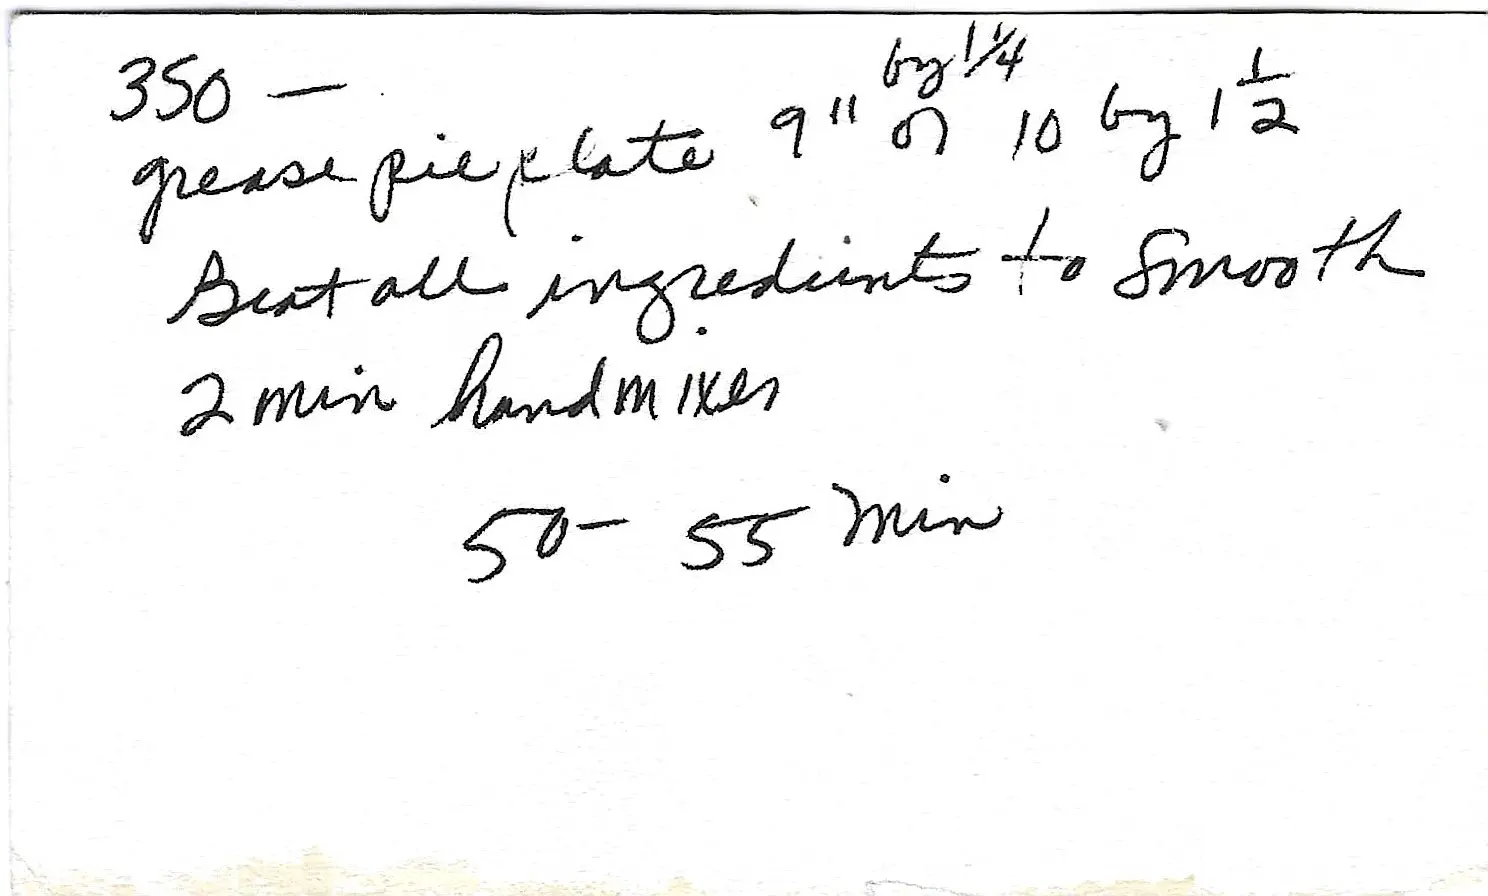 350 —
grease pie plate 9" by 1 1/4 or 10 by 1 1/2
Beat all ingredients to smooth
2 min hand mixer
50 - 55 min